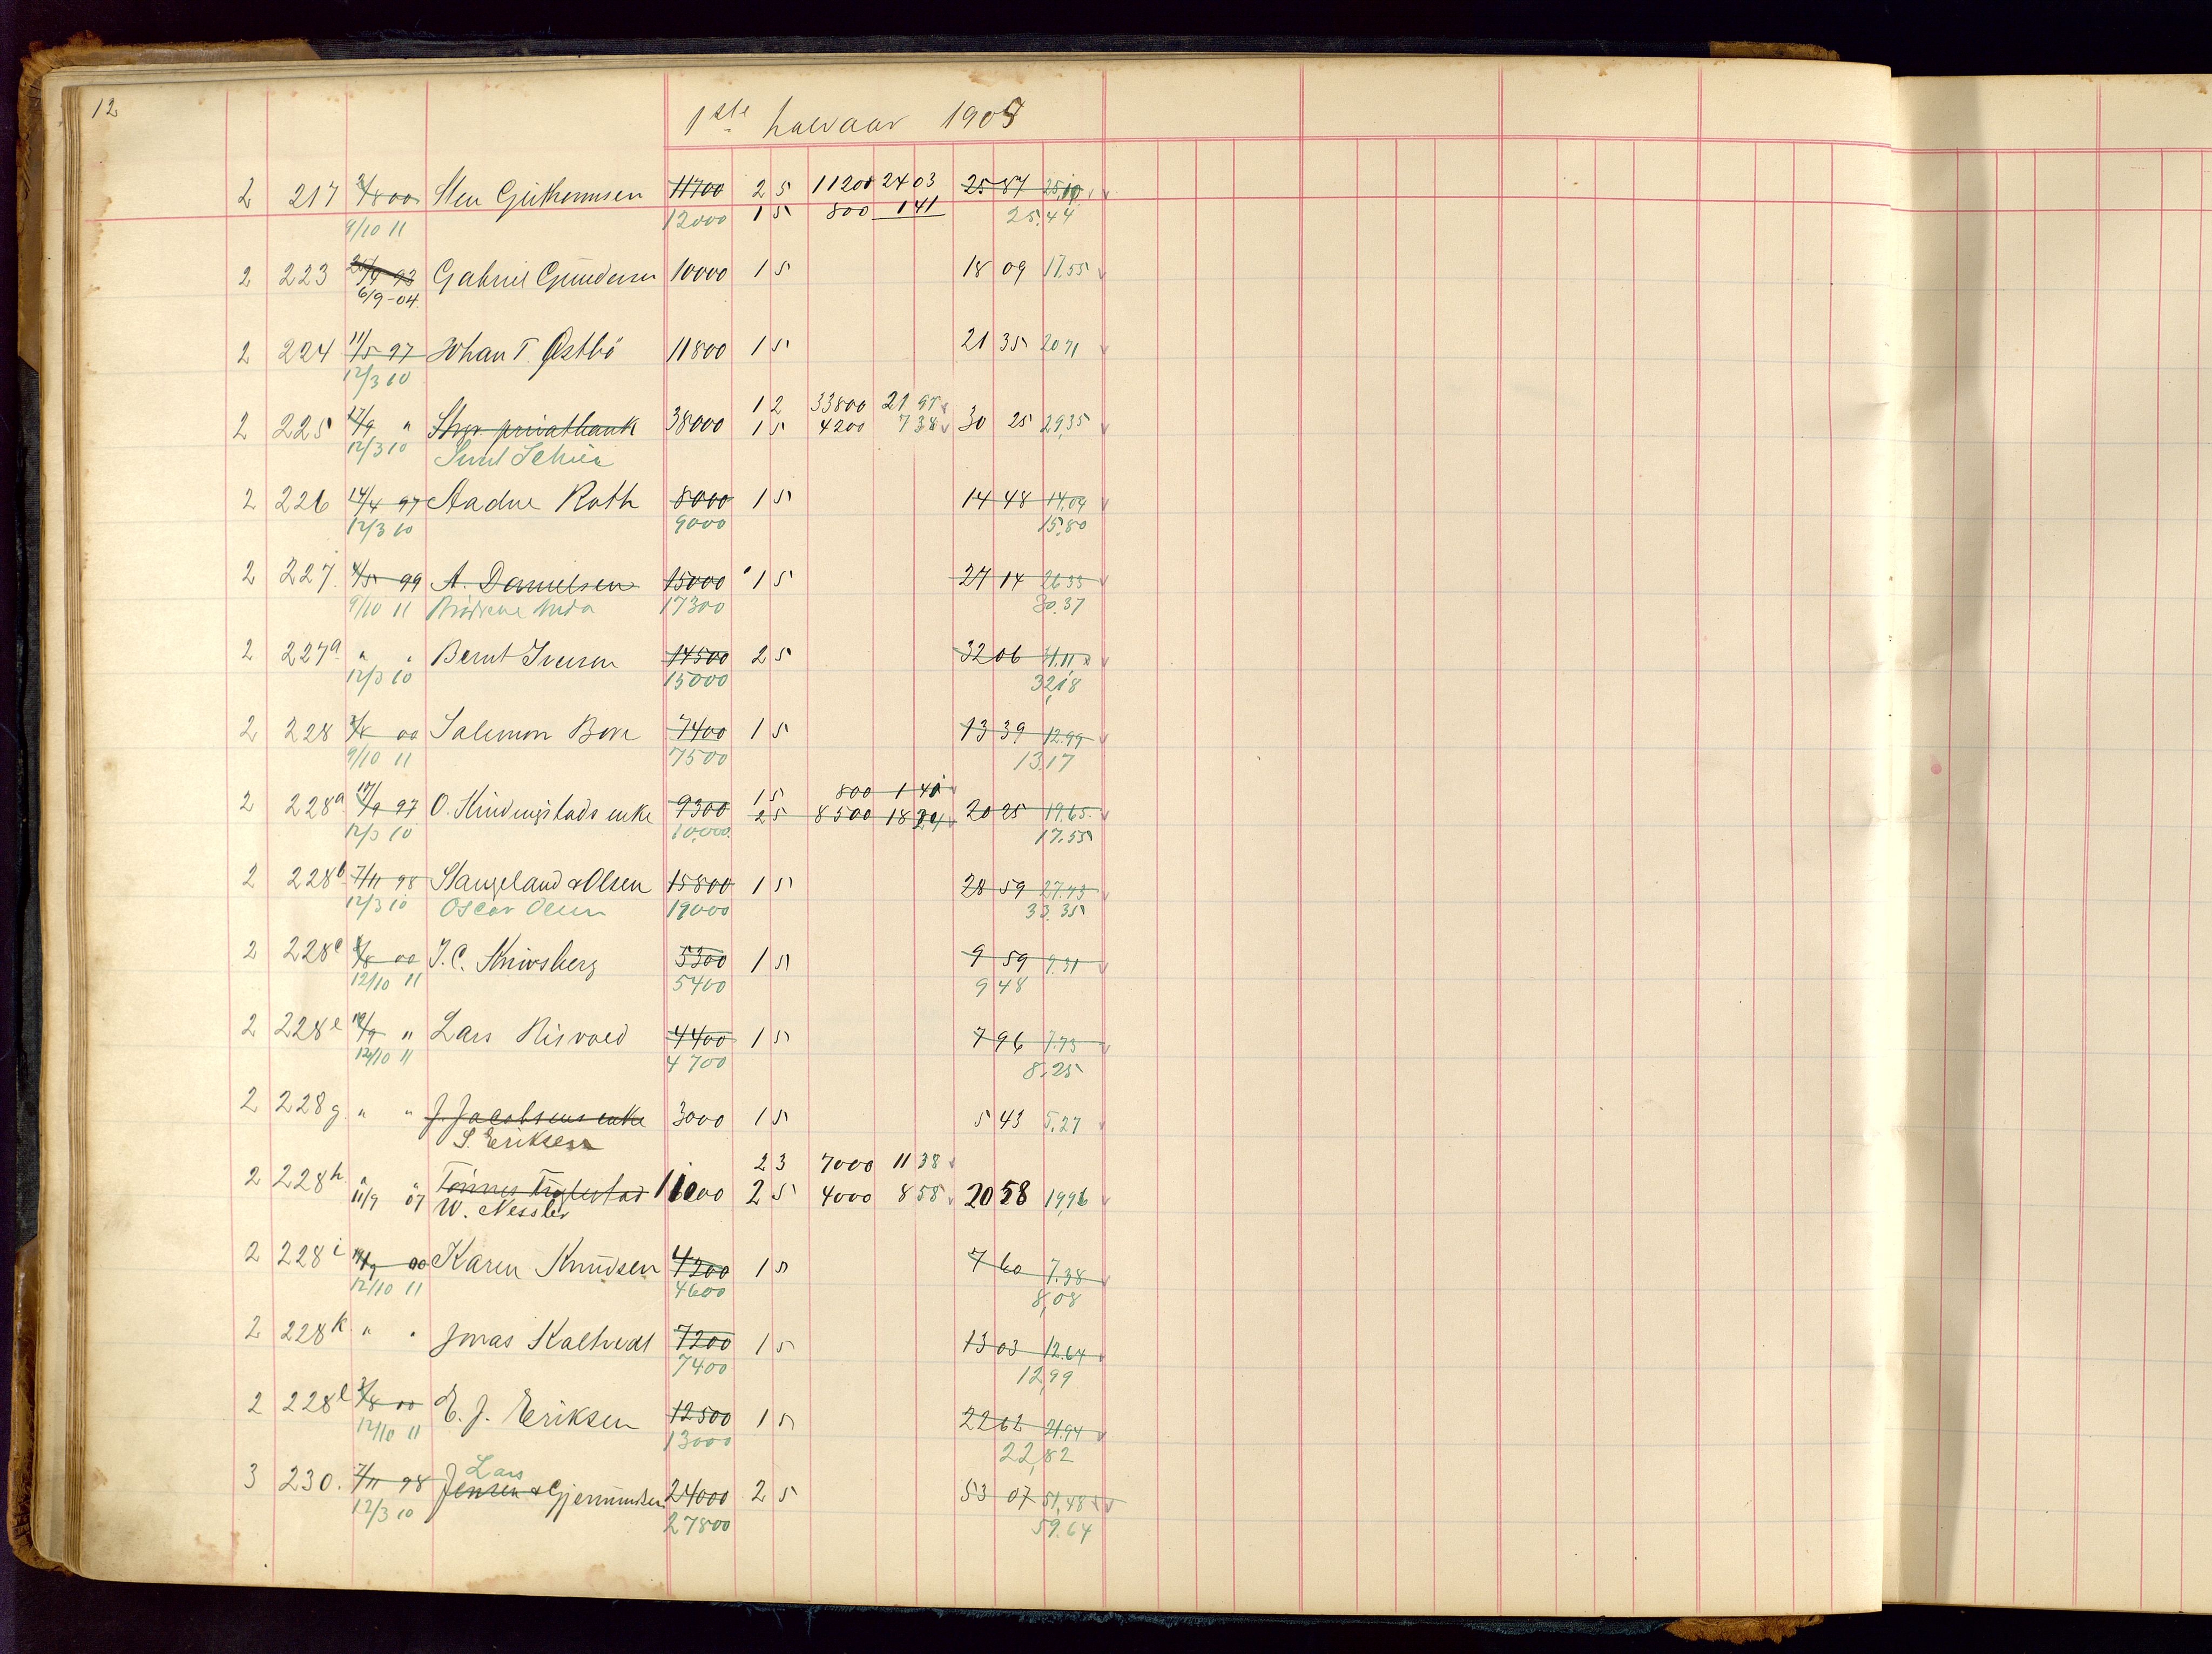 12
1ste halvaar 1905
2 217 2/8 00 Sten Guthormsen 11700 2 5 11200 24 03 25 87 25,10
9/10 11 12000 1 5 800 1 41 25,44
2 223 25/9 93 Gabriel Gundersen 10000 1 5 18 09 17,55
6/9-04.
2 224 11/5 97 Johan T. Østbö 11800 1 5 21 35 20 71
12/3 10
1 2 33800 21 97
2 225 17/9 " Stvgr. privatbank 38000 1 5 4200 7 38 30 25 29,35
12/3 10
2 226 14/4 97 Aadne Roth 8000 1 5 14 48 14,04
12/3 10 9000 15,80
2 227. 4/5 99 A. Danielsen 15000 1 5 27 14 26 33
9/10 11 Brödrene 17300 30,37
2 227a " " Bernt Iversen 14500 2 5 32 06 31,11
12/3 10 15000 32,18
2 228 2/8 00 Salemon Bore 7400 1 5 13 39 12,99
9/10 11 7500 13,17
1 5 800 1 41
2 228a 17/9 97 O. Kindingstads enke 9300 2 5 8500 18 24 20 25 19,65
12/3 10 10,000. 17,55
2 228b 7/11 98 Stangeland & Olsen 15800 1 5 28 59 27,73
12/3 10 Oscar Olsen 19000 33,35
2 228c 2/8 00 J. C. Knivsberg 5300 1 5 9 59 9,31
12/10 11 5400 9 48
2 228e 19/9 " Lars Risvold 4400 1 5 7 96 7,73
12/10 11 4700 8,25
2 228g " " J. Jacobsens enke 3000 1 5 5 43 5,27
S. Eriksen
2 3 7000 11 38
2 228h " " Tönnes 11000 2 5 4000 8 58 20 58 19,96
11/9 07 W. Nessler
2 228i 19/9 00 Karen Knudsen 4200 1 5 7 60 7,38
12/10 11 4600 8,08
2 228k " " Jonas Kalhvedt 7200 1 5 13 03 12,64
7400 12,99
2 228l 2/8 00 E. J. Eriksen 12500 1 5 22 62 21,94
12/10 11 13000 22,82
Lars
3 230. 7/11 98 Jensen & Gjermundsen 24000 2 5 53 07 51,48
12/3 10 27800 59,64